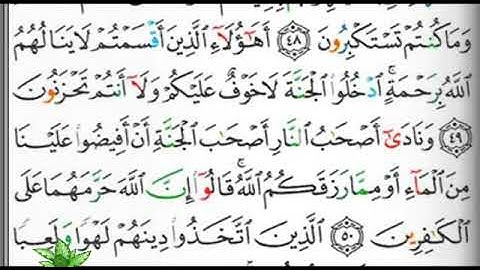 وَمَا كُنتُمْ تَسْتَكْبِرُونَ ٤٨ أَهَٰٓؤُلَآءِ ٱلَّذِينَ أَقْسَمْتُمْ لَا يَنَالُهُمُ
ٱللَّهُ بِرَحْمَةٍ ۚ ٱدْخُلُوا۟ ٱلْجَنَّةَ لَا خَوْفٌ عَلَيْكُمْ وَلَآ أَنتُمْ تَحْزَنُونَ
٤٩ وَنَادَىٰٓ أَصْحَٰبُ ٱلنَّارِ أَصْحَٰبَ ٱلْجَنَّةِ أَنْ أَفِيضُوا۟ عَلَيْنَا
مِنَ ٱلْمَآءِ أَوْ مِمَّا رَزَقَكُمُ ٱللَّهُ ۚ قَالُوٓا۟ إِنَّ ٱللَّهَ حَرَّمَهُمَا عَلَى
ٱلْكَٰفِرِينَ ٥٠ ٱلَّذِينَ ٱتَّخَذُوا۟ دِينَهُمْ لَهْوًا وَلَعِبًا